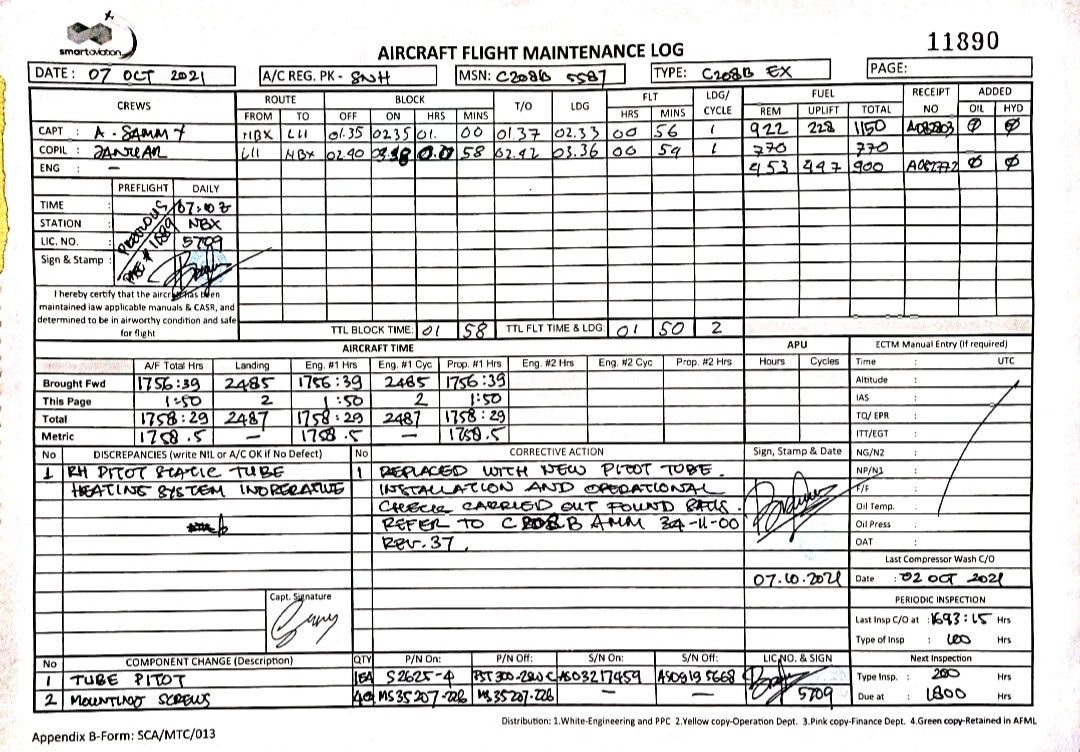 smartaviation
AIRCRAFT FLIGHT MAINTENANCE LOG
11890
DATE: 07 OCT 2021 A/C REG. PK - SNH MSN: C208B 5587 TYPE: C208B EX PAGE:
CREWS ROUTE BLOCK T/O LDG FLT LDG/CYCLE FUEL RECEIPT NO ADDED
FROM TO OFF ON HRS MINS HRS MINS REM UPLIFT TOTAL OIL HYD
CAPT : A. SAMMY NBX LII 01.35 02.35 01. 00 01.37 02.33 00 56 1 922 228 1150 Ø Ø
COPIL : JANUAR LII NBX 02.40 58 02.42 03.36 00 54 1 770 770
ENG : — 453 447 900 A082772 Ø Ø
PREFLIGHT DAILY
TIME : 07:00 Z
STATION : NBX
LIC. NO. : 5709
Sign & Stamp :
PREVIOUS
PAGE # 11889
I hereby certify that the aircraft has been
maintained iaw applicable manuals & CASR, and
determined to be in airworthy condition and safe
for flight
TTL BLOCK TIME: 01 58 TTL FLT TIME & LDG: 01 50 2
AIRCRAFT TIME APU ECTM Manual Entry (If required)
A/F Total Hrs Landing Eng. #1 Hrs Eng. #1 Cyc Prop. #1 Hrs Eng. #2 Hrs Eng. #2 Cyc Prop. #2 Hrs Hours Cycles Time : UTC
Brought Fwd 1756:39 2485 1756:39 2485 1756:39 Altitude :
This Page 1:50 2 1:50 2 1:50 IAS :
Total 1758:29 2487 1758:29 2487 1758:29 TQ/ EPR :
Metric 1758.5 — 1758.5 — 1758.5 ITT/EGT :
No DISCREPANCIES (write NIL or A/C OK if No Defect) No CORRECTIVE ACTION Sign, Stamp & Date NG/N2 :
1 RH PITOT STATIC TUBE 1 REPLACED WITH NEW PITOT TUBE. NP/N1 :
HEATING SYSTEM INOPERATIVE INSTALLATION AND OPERATIONAL F/F :
CHECK CARRIED OUT FOUND SATIS. Oil Temp. :
REFER TO C208B AMM 34-11-00 Oil Press :
REV. 37. OAT :
Last Compressor Wash C/O
07.10.2021 Date : 02 OCT 2021
Capt. Signature
PERIODIC INSPECTION
Last Insp C/O at : 1693:15 Hrs
Type of Insp : 100 Hrs
No COMPONENT CHANGE (Description) QTY P/N On: P/N Off: S/N On: S/N Off: LIC NO. & SIGN Next Inspection
1 TUBE PITOT 1EA S2625-4 AS03217459 AS09195668 Type Insp. : 200 Hrs
2 MOUNTING SCREWS MS35207-226 MS35207-226 — — 5709 Due at : 1800 Hrs
Distribution: 1.White-Engineering and PPC 2.Yellow copy-Operation Dept. 3.Pink copy-Finance Dept. 4.Green copy-Retained in AFML
Appendix B-Form: SCA/MTC/013